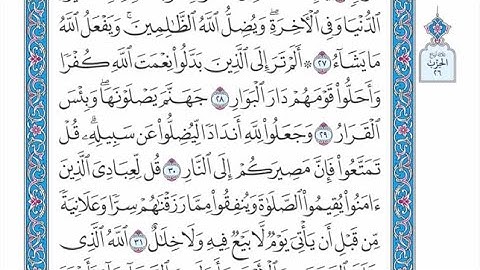 ٱلدُّنْيَا وَفِي ٱلْأَخِرَةِۖ وَيُضِلُّ ٱللَّهُ ٱلظَّٰلِمِينَۚ وَيَفْعَلُ ٱللَّهُ
مَا يَشَآءُ ٢٧ ۞ أَلَمْ تَرَ إِلَى ٱلَّذِينَ بَدَّلُوا۟ نِعْمَتَ ٱللَّهِ كُفْرًا
وَأَحَلُّوا۟ قَوْمَهُمْ دَارَ ٱلْبَوَارِ ٢٨ جَهَنَّمَ يَصْلَوْنَهَاۖ وَبِئْسَ
ٱلْقَرَارُ ٢٩ وَجَعَلُوا۟ لِلَّهِ أَندَادًا لِّيُضِلُّوا۟ عَن سَبِيلِهِۦۗ قُلْ
تَمَتَّعُوا۟ فَإِنَّ مَصِيرَكُمْ إِلَى ٱلنَّارِ ٣٠ قُل لِّعِبَادِيَ ٱلَّذِينَ
ءَامَنُوا۟ يُقِيمُوا۟ ٱلصَّلَوٰةَ وَيُنفِقُوا۟ مِمَّا رَزَقْنَٰهُمْ سِرًّا وَعَلَانِيَةً
مِّن قَبْلِ أَن يَأْتِيَ يَوْمٌ لَّا بَيْعٌ فِيهِ وَلَا خِلَٰلٌ ٣١ ٱللَّهُ ٱلَّذِي
ٱلْحِزْبِ
٢٦